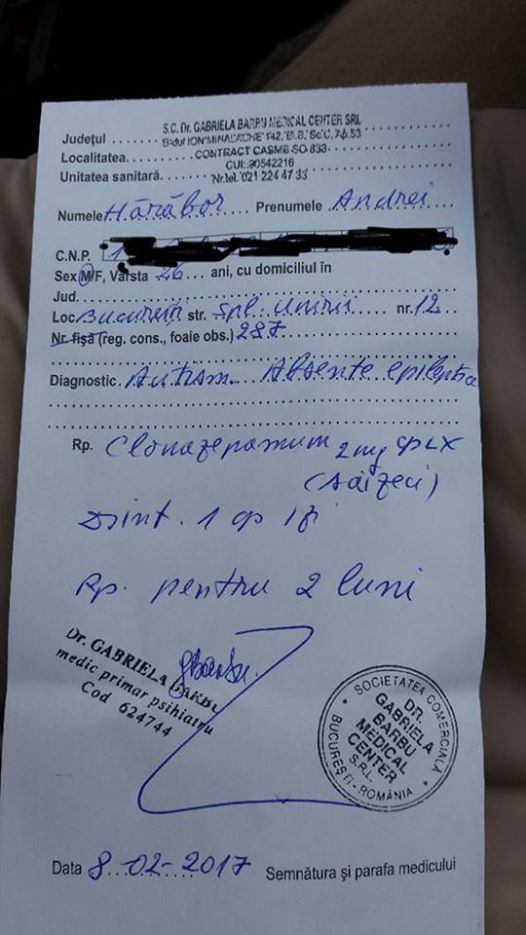 S.C. Dr. GABRIELA BARBU MEDICAL CENTER SRL
Județul ........ B-dul ION MIHALACHE 142, Bl.B, Sc.C, Ap.53
Localitatea.......... CONTRACT CASMB SO 833
CUI: 30542216
Unitatea sanitară.......... Nr.tel. 021 224 47 33
Numele Hărăbor.... Prenumele Andrei....
C.N.P. 1
Sex M/F, Vârsta 26... ani, cu domiciliul în
Jud.
Loc București str. Spl. Unirii..... nr. 12...
Nr. fișă (reg. cons., foaie obs.) 287
Diagnostic. Autism. Absente epileptice
Rp. Clonazepamum 2mg cp LX
(șaizeci)
Dsint. 1 cp / zi
Rp. pentru 2 luni
Dr. GABRIELA BARBU
medic primar psihiatru
Cod 624744
GBarbu.
SOCIETATEA COMERCIALĂ
DR. GABRIELA BARBU MEDICAL CENTER S.R.L.
BUCUREȘTI - ROMÂNIA
Data 8.02-2017 Semnătura și parafa medicului